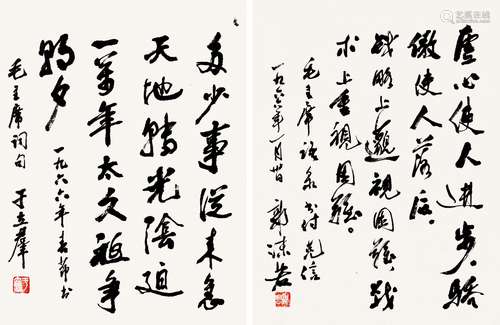 虚心使人進步。驕
傲使人落后。
战略上藐視困難，战
术上重視困難。
毛主席语录书付先信
一九六六年一月廿日 郭沫若
多少事從来急
天地转光陰迫
一萬年太久祗争
朝夕
毛主席词句
一九六六年春节书
于立群